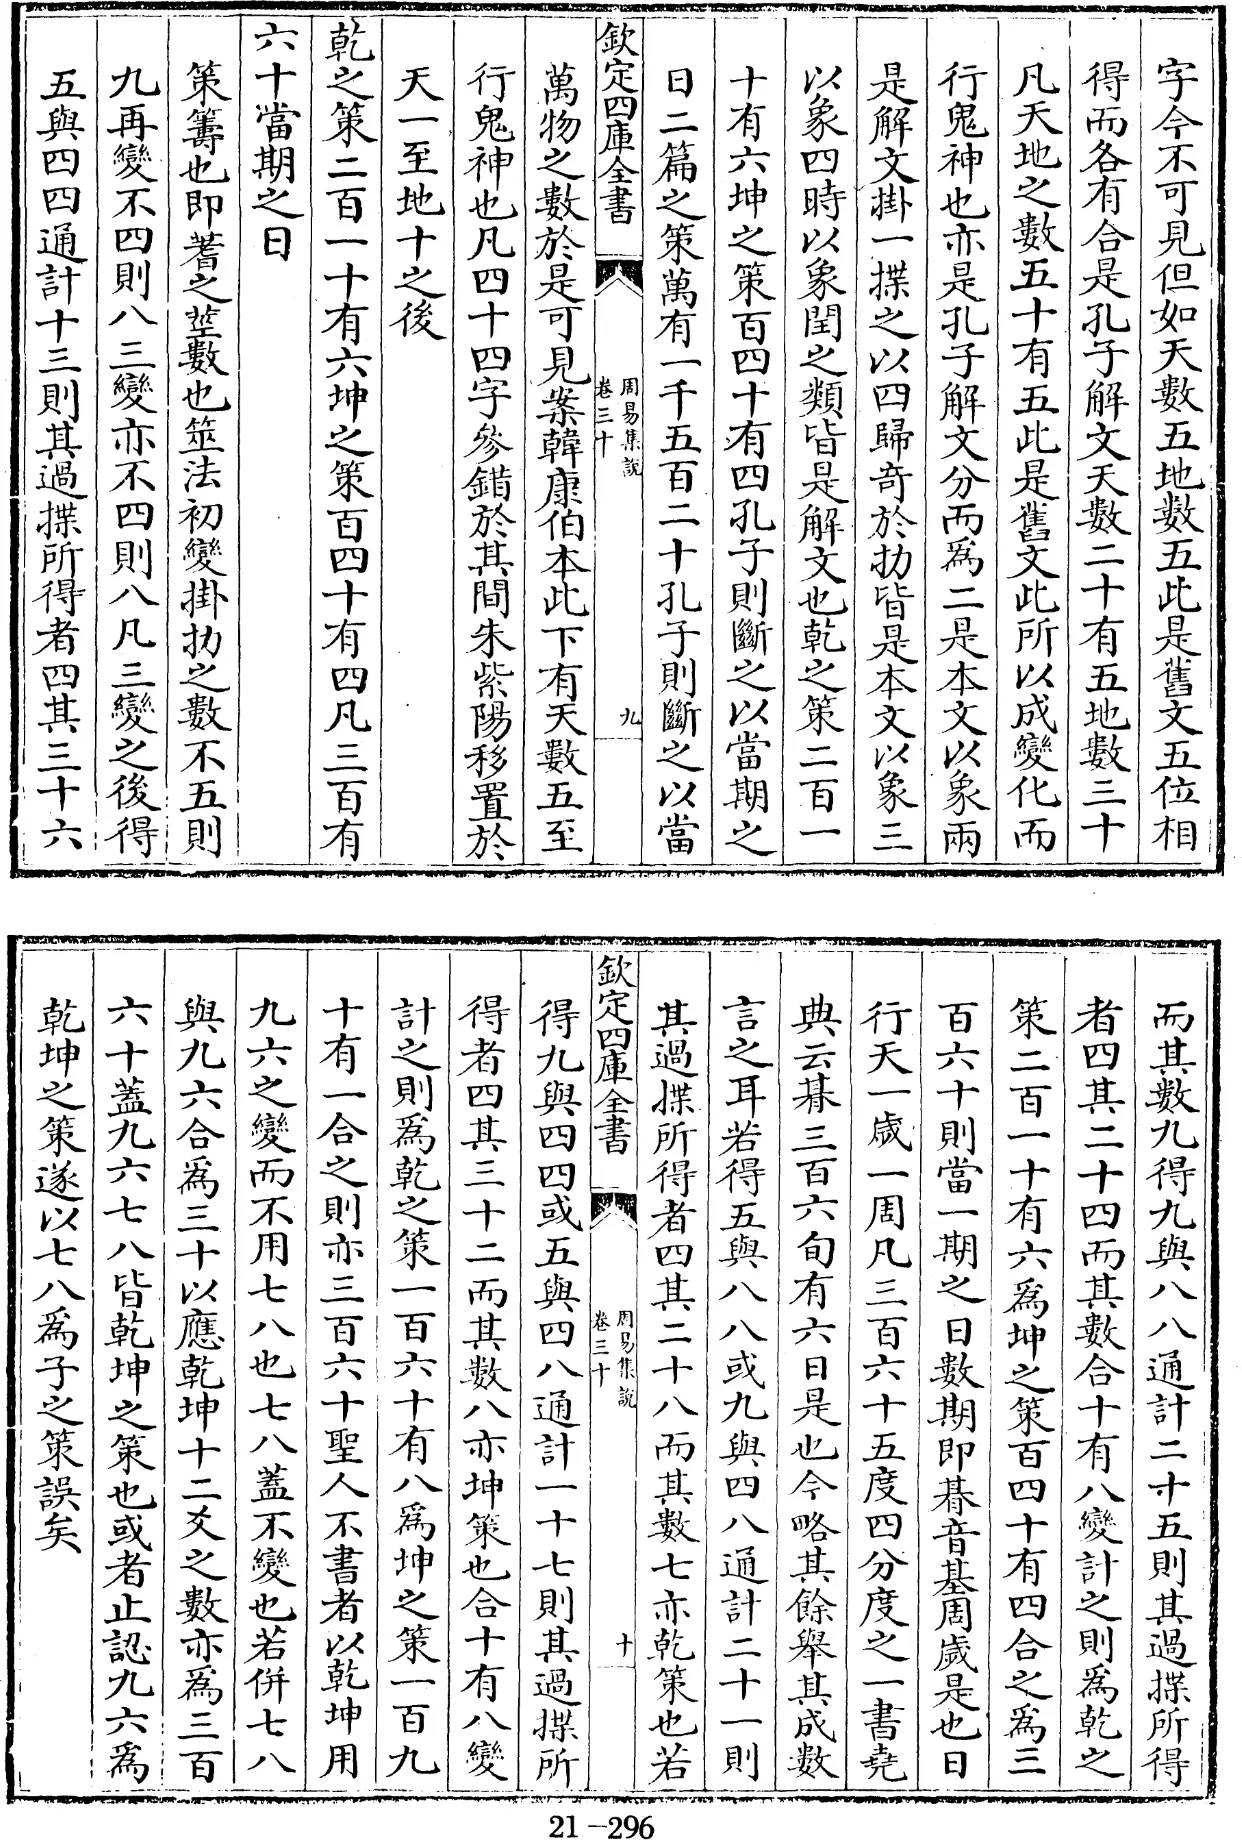 字今不可見但如天數五地數五此是舊文五位相
得而各有合是孔子解文天數二十有五地數三十
凡天地之數五十有五此是舊文此所以成變化而
行鬼神也亦是孔子解文分而為二是本文以象兩
是解文掛一揲之以四歸奇於扐皆是本文以象三
以象四時以象閏之類皆是解文也乾之策二百一
十有六坤之策百四十有四孔子則斷之以當期之
日二篇之策萬有一千五百二十孔子則斷之以當
欽定四庫全書
周易集說
卷三十
九
萬物之數於是可見案韓康伯本此下有天數五至
行鬼神也凡四十四字參錯於其間朱紫陽移置於
天一至地十之後
乾之策二百一十有六坤之策百四十有四凡三百有
六十當期之日
策籌也即蓍之莖數也筮法初變掛扐之數不五則
九再變不四則八三變亦不四則八凡三變之後得
五與四四通計十三則其過揲所得者四其三十六
而其數九得九與八八通計二十五則其過揲所得
者四其二十四而其數合十有八變計之則為乾之
策二百一十有六為坤之策百四十有四合之為三
百六十則當一期之日數期即朞音基周歲是也日
行天一歲一周凡三百六十五度四分度之一書堯
典云朞三百六旬有六日是也今略其餘舉其成數
言之耳若得五與八八或九與四八通計二十一則
其過揲所得者四其二十八而其數七亦乾策也若
欽定四庫全書
周易集說
卷三十
十
得九與四四或五與四八通計一十七則其過揲所
得者四其三十二而其數八亦坤策也合十有八變
計之則為乾之策一百六十有八為坤之策一百九
十有一合之則亦三百六十聖人不書者以乾坤用
九六之變而不用七八也七八蓋不變也若併七八
與九六合為三十以應乾坤十二爻之數亦為三百
六十蓋九六七八皆乾坤之策也或者止認九六為
乾坤之策遂以七八為子之策誤矣
21-296